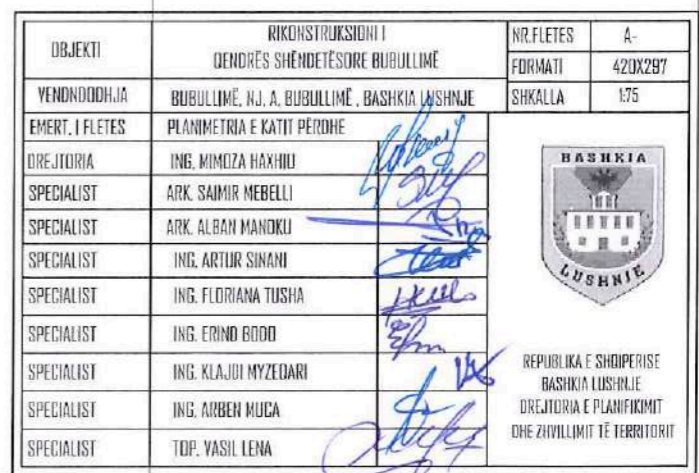 OBJEKTI
RIKONSTRUKSIONI I
QENDRËS SHËNDETËSORE BUBULLIMË
NR.FLETES A-
FORMATI 420X297
VENDNDODHJA BUBULLIMË, NJ. A. BUBULLIMË , BASHKIA LUSHNJE SHKALLA 1:75
EMERT. I FLETES PLANIMETRIA E KATIT PËRDHE
DREJTORIA ING. MIMOZA HAXHIU
SPECIALIST ARK. SAIMIR MEBELLI
SPECIALIST ARK. ALBAN MANOKU
SPECIALIST ING. ARTUR SINANI
SPECIALIST ING. FLORIANA TUSHA
SPECIALIST ING. ERIND BODO
SPECIALIST ING. KLAJDI MYZEQARI
SPECIALIST ING. ARBEN MUCA
SPECIALIST TOP. VASIL LENA
BASHKIA
LUSHNJE
REPUBLIKA E SHQIPERISE
BASHKIA LUSHNJE
DREJTORIA E PLANIFIKIMIT
DHE ZHVILLIMIT TË TERRITORIT